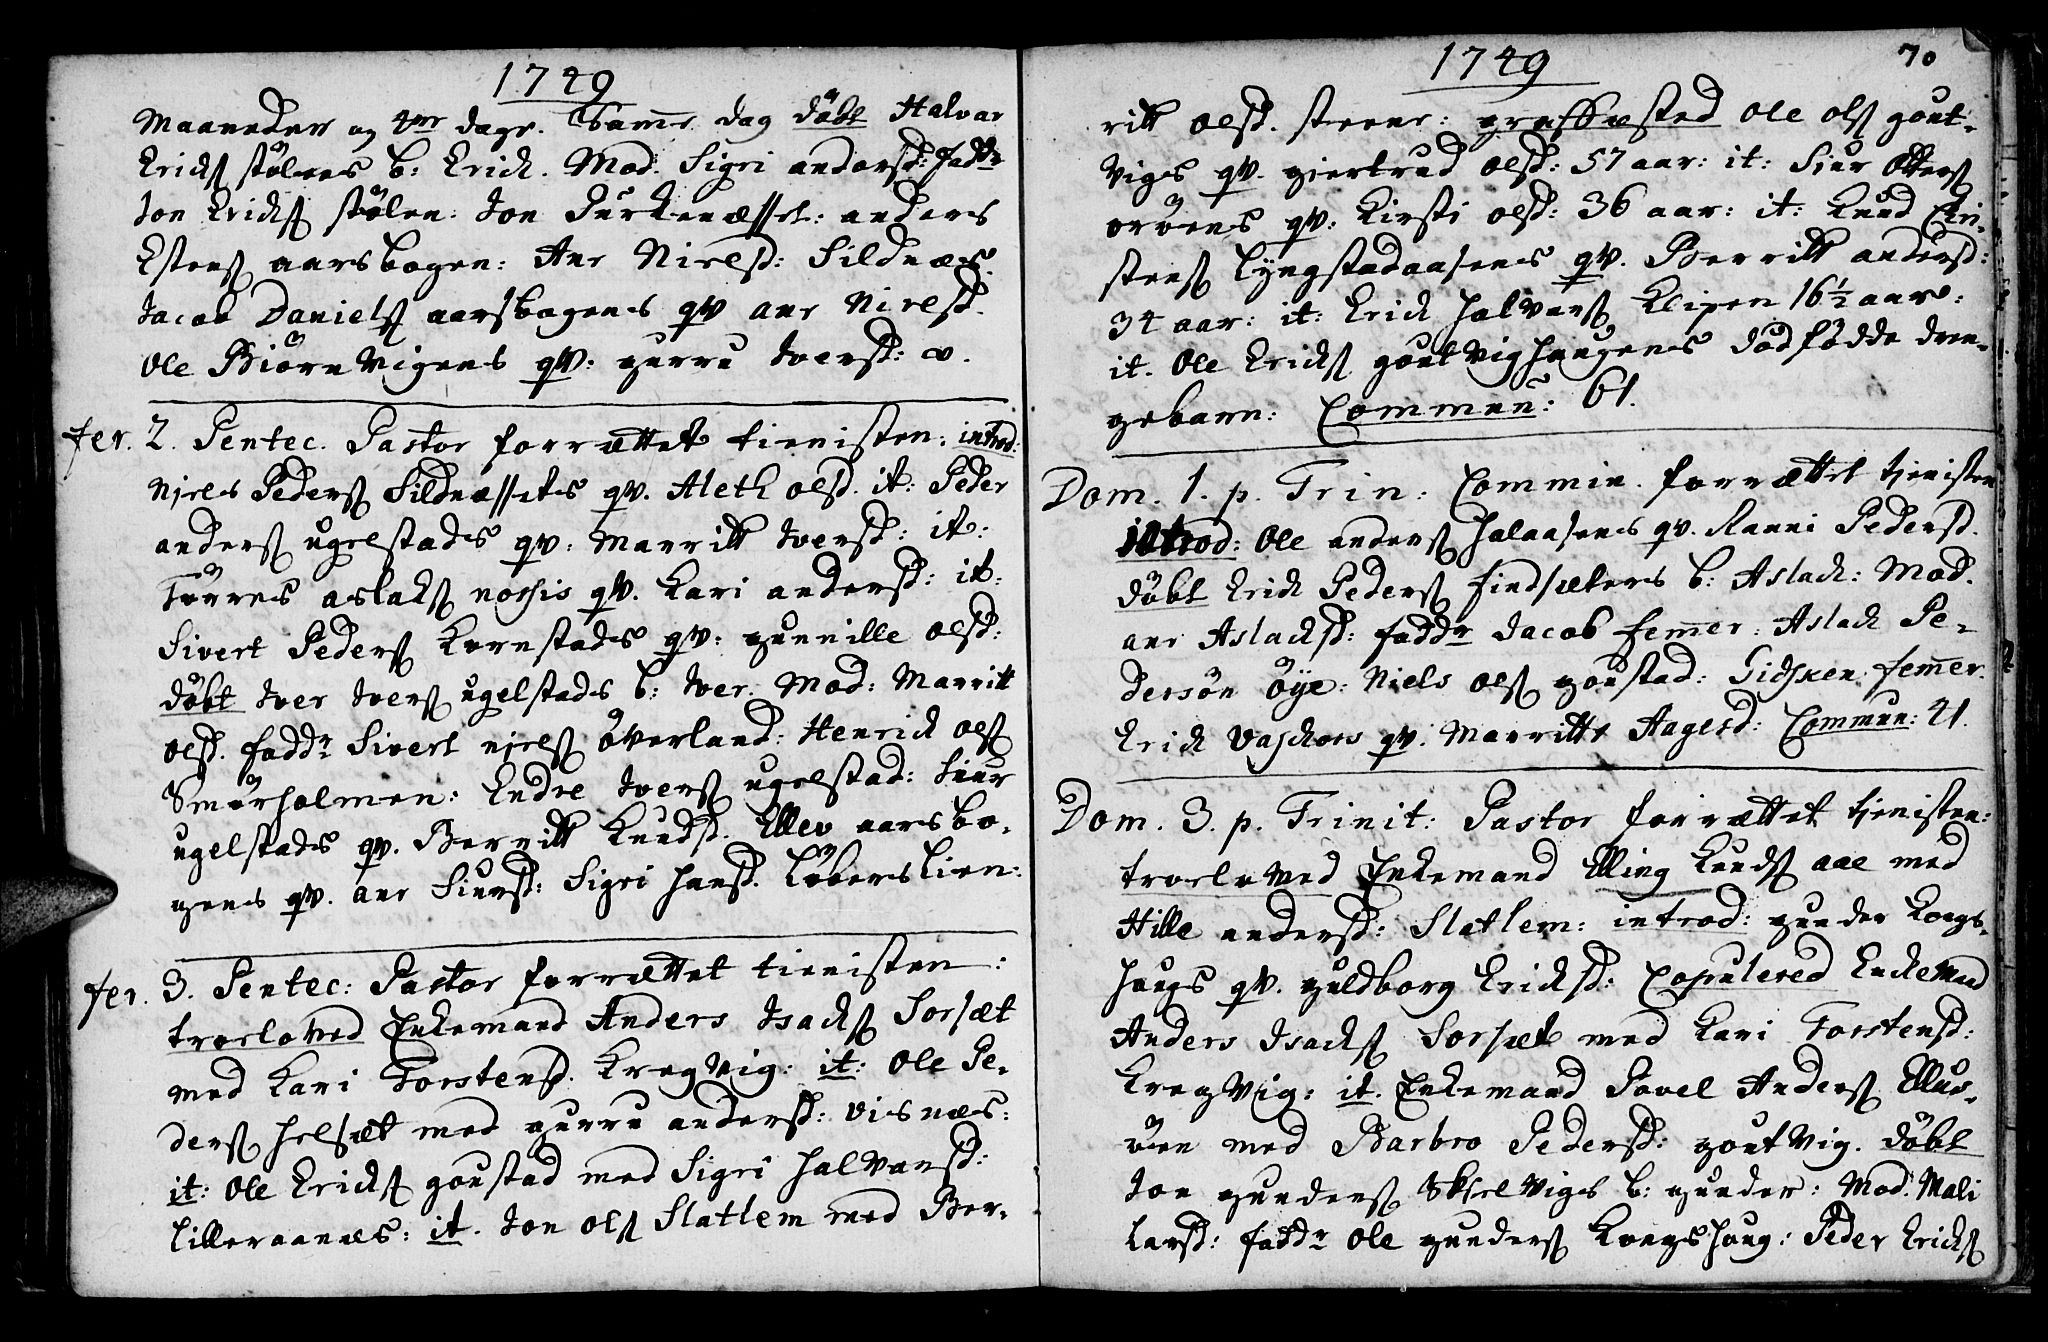 1749
Maaneder og 4re dage. Samme dag döbt Halvar
Ericks stölens b: Erick. Mod. Sigri andersd: fadd.r
Jon Ericks stölen: Jon Surkenæsset: anders
Estens aarsbogen: Ane Nielsd: Sildnæs.
Jacob Daniels aarsbogens qv ane Nielsd.
Ole Biörnvigens qv: gurru Iversd:
fer. 2. Pentec. Pastor forrættet tienisten: introd:
Njels Peders Sildnæssets qv. Aleth olsd. it: Peder
anders ugelstads qv: Marritt Iversd: it:
Töures aslaks qv. Kari andersd: it:
Sivert Peders Kornstads qv: gunnille olsd:
döbt Iver Ivers ugelstads b: Iver. Mod: Marritt
olsd. fadd.r Sivert njels överland: Henrick ols
Smörholmen: Endre Ivers ugelstad: Siur
ugelstads qv. Berritt Knudsd. Ellev aarsbo-
gens qv. ane Siursd: Sigri hansd. Löverslien:
fer. 3. Pentec: Pastor forrættet tienisten:
troeloved Enkemand Anders Isacks Sorsæt
med Kari Torstensd. Kregvig: it: Ole Pe-
ders helsæt med gurru andersd: Visnæs:
it: Ole Ericks goustad med Sigri halvarsd:
Lilleraanæs: it. Jon ols Slatlem med Ber-
1749
70
ritt olsd. steene: graffæsted Ole ols gout-
vigs qv. giertrud olsd: 57 aar: it: Siur Otters
oröens qv: Kirsti olsd: 36 aar: it: Knud Chri-
stens Lyngstadaasens qv. Berritt andersd:
34 aar: it: Erick halvars Klipen 16½ aar:
it. Ole Ericks goutvighaugens dödfödde dren-
gebarn: Commun: 61.
Dom. 1. p. Trin: Commin. forrættet tjenisten
introd: Ole anders halaasens qv. Ranni Pedersd.
döbt Erick Peders findsæters b: Aslack: Mod.
ane Aslacksd: fadd.r Jacob femmer: Aslack Pe-
dersön Öye: Niels ols goustad: Gidsken femmer.
Erick Vaschors qv. Marritte Aagesd: Commun: 41.
Dom. 3. p. Trinit: Pastor forrættet tjenisten:
troeloved Enkemand Elling Knuds aae med
Hille andersd: Slatlem: introd: gunder Kongs-
haugs qv. guldborg Ericksd: Copulered Enckemand
Anders Isacks Sorsæt med Kari Torstensd:
Kregvig: it. Enkemand Povel Anders Ellus-
öen med Barbro Pedersd: goutvig. döbt
Jon gunders Skjelvigs b: gunder: Mod. Mali
Larsd: fadd.r Ole gunders Kongshaug: Peder Ericks